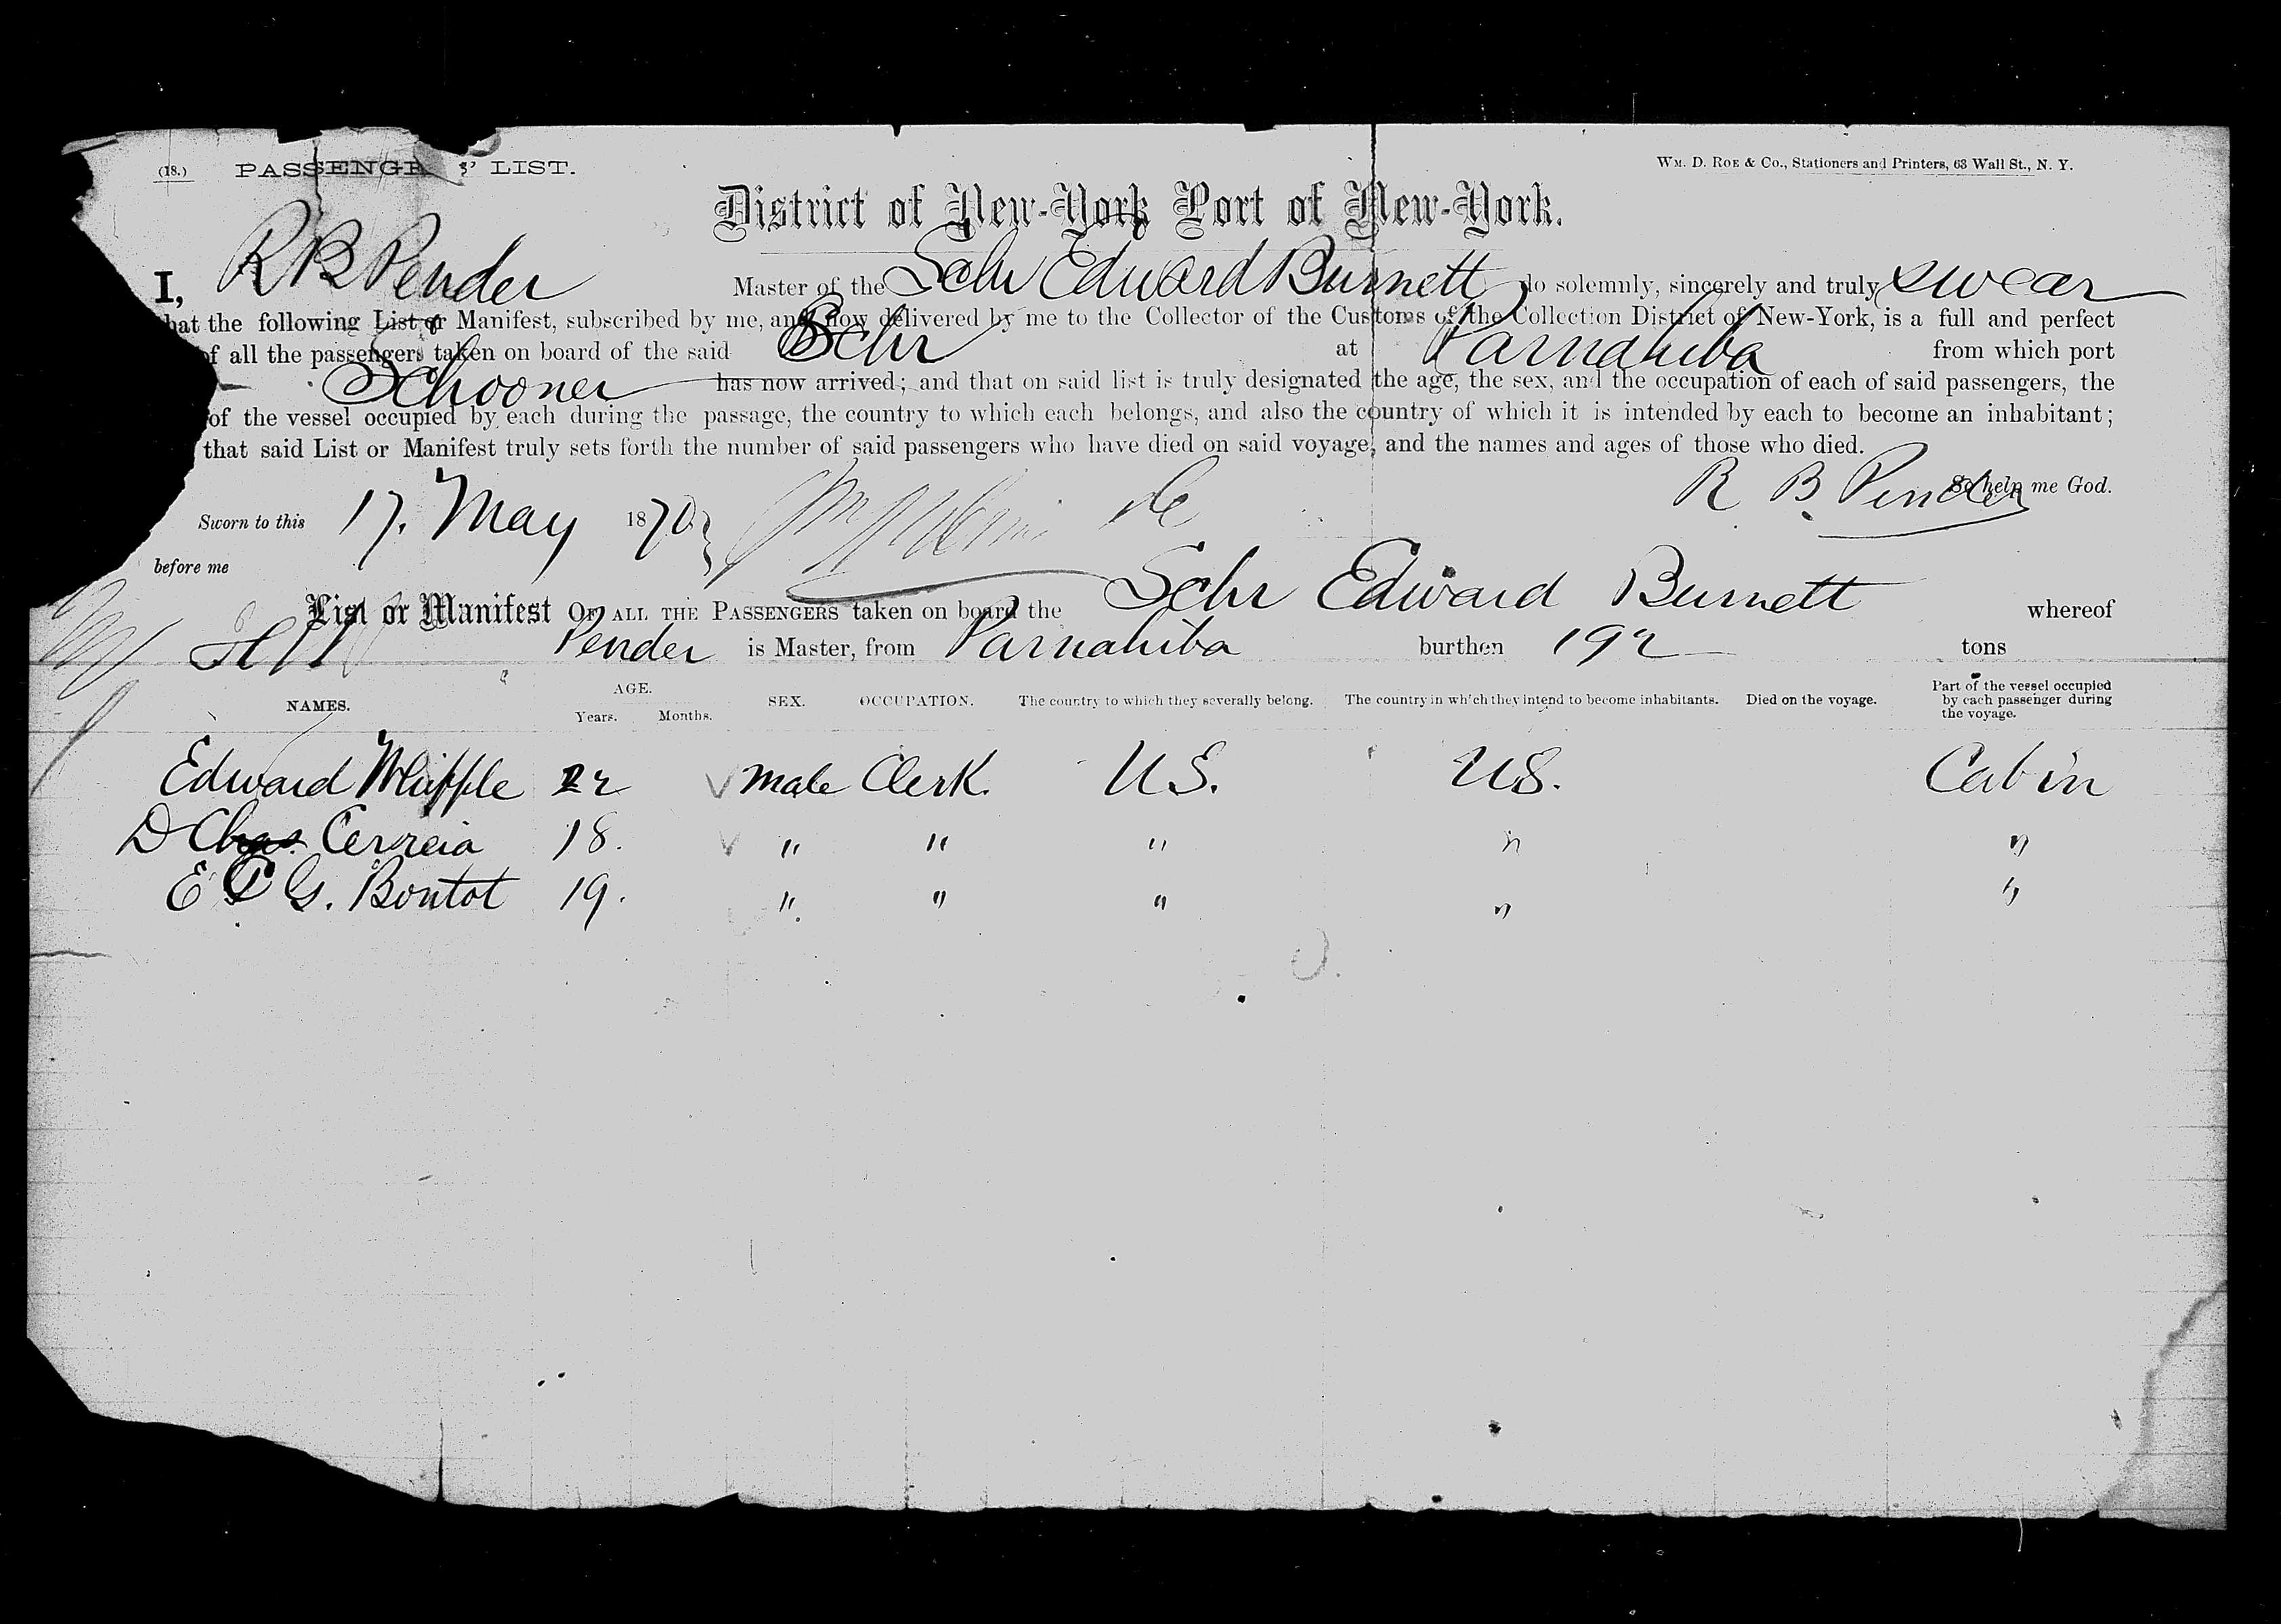 (18.) PASSENGE S' LIST. WM. D. ROE & Co., Stationers and Printers, 63 Wall St., N. Y.
District of New-York Port of New-York.
I, R B Pender Master of the Schr Edward Burnett do solemnly, sincerely and truly swear
hat the following List or Manifest, subscribed by me, and now delivered by me to the Collector of the Customs of the Collection District of New-York, is a full and perfect
of all the passengers taken on board of the said Schr at Parnahiba from which port
Schooner has now arrived; and that on said list is truly designated the age, the sex, and the occupation of each of said passengers, the
of the vessel occupied by each during the passage, the country to which each belongs, and also the country of which it is intended by each to become an inhabitant;
that said List or Manifest truly sets forth the number of said passengers who have died on said voyage, and the names and ages of those who died.
R B Pender So help me God.
Sworn to this 17. May 1870
before me
List or Manifest OF ALL THE PASSENGERS taken on board the Schr Edward Burnett whereof
Pender is Master, from Parnahiba burthen 192 tons
NAMES. AGE. Years. Months. SEX. OCCUPATION. The country to which they severally belong. The country in which they intend to become inhabitants. Died on the voyage. Part of the vessel occupied by each passenger during the voyage.
Edward 22 male Clerk. U S. US. Cabin
D Correia 18. " " " " "
E G. Bontot 19. " " " " "